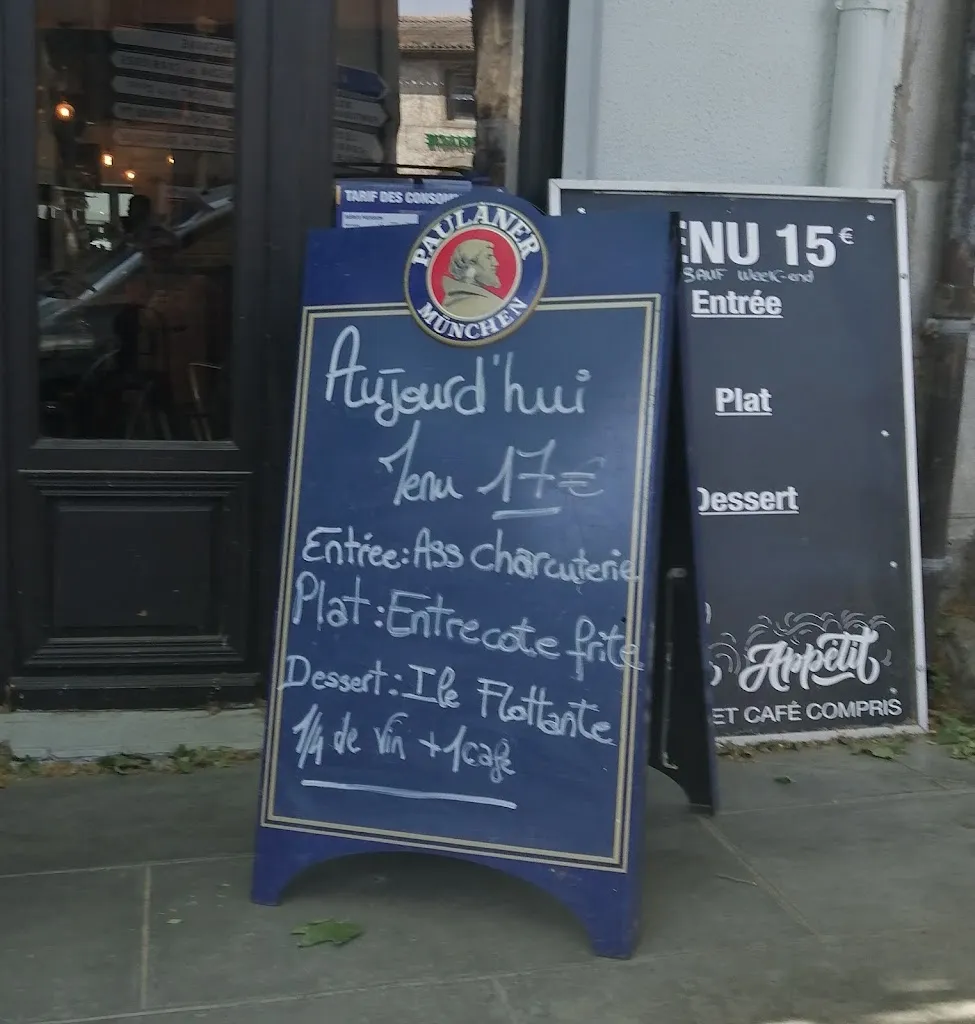 TARIF DES CONSOM
PAULANER
MÜNCHEN
Aujourd'hui
Menu 17€
Entrée: Ass charcuterie
Plat: Entrecote frite
Dessert: Ile Flottante
1/4 de vin + 1 café
ENU 15€
SAUF WEEK-end
Entrée
Plat
Dessert
Appétit
ET CAFÉ COMPRIS